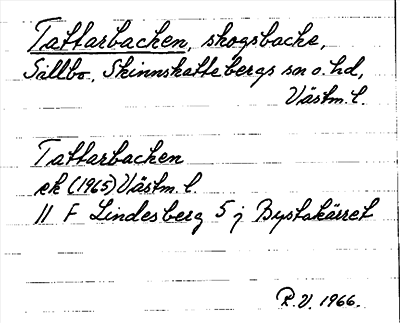 Tattarbacken, skogsbacke,
Sällbo, Skinnskattebergs sn o. hd,
Västm. l.
Tattarbacken
ek (1965) Västm. l.
11 F Lindesberg 5 j Bystakärret
R.V. 1966.